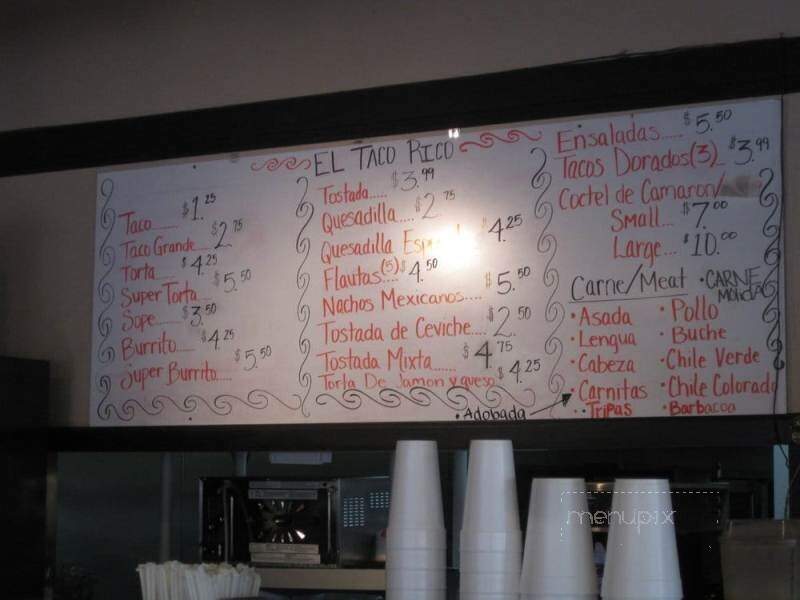 EL TACO RICO
Taco..... $1.25
Taco Grande.... $2.75
Torta.... $4.25
Super Torta... $5.50
Sope..... $3.50
Burrito..... $4.25
Super Burrito..... $5.50
Tostada.... $3.99
Quesadilla.... $2.75
Quesadilla $4.25
Flautas(5).. $4.50
Nachos Mexicanos.... $5.50
Tostada de Ceviche... $2.50
Tostada Mixta...... $4.75
Torta De Jamon y queso $4.25
Ensaladas.... $5.50
Tacos Dorados(3).. $3.99
Coctel de Camaron/
Small... $7.00
Large... $10.00
Carne/Meat
• CARNE
• Asada
• Lengua
• Cabeza
• Carnitas
• Tripas
• Adobada
• Pollo
• Buche
• Chile Verde
• Chile Colorado
• Barbacoa
menupix